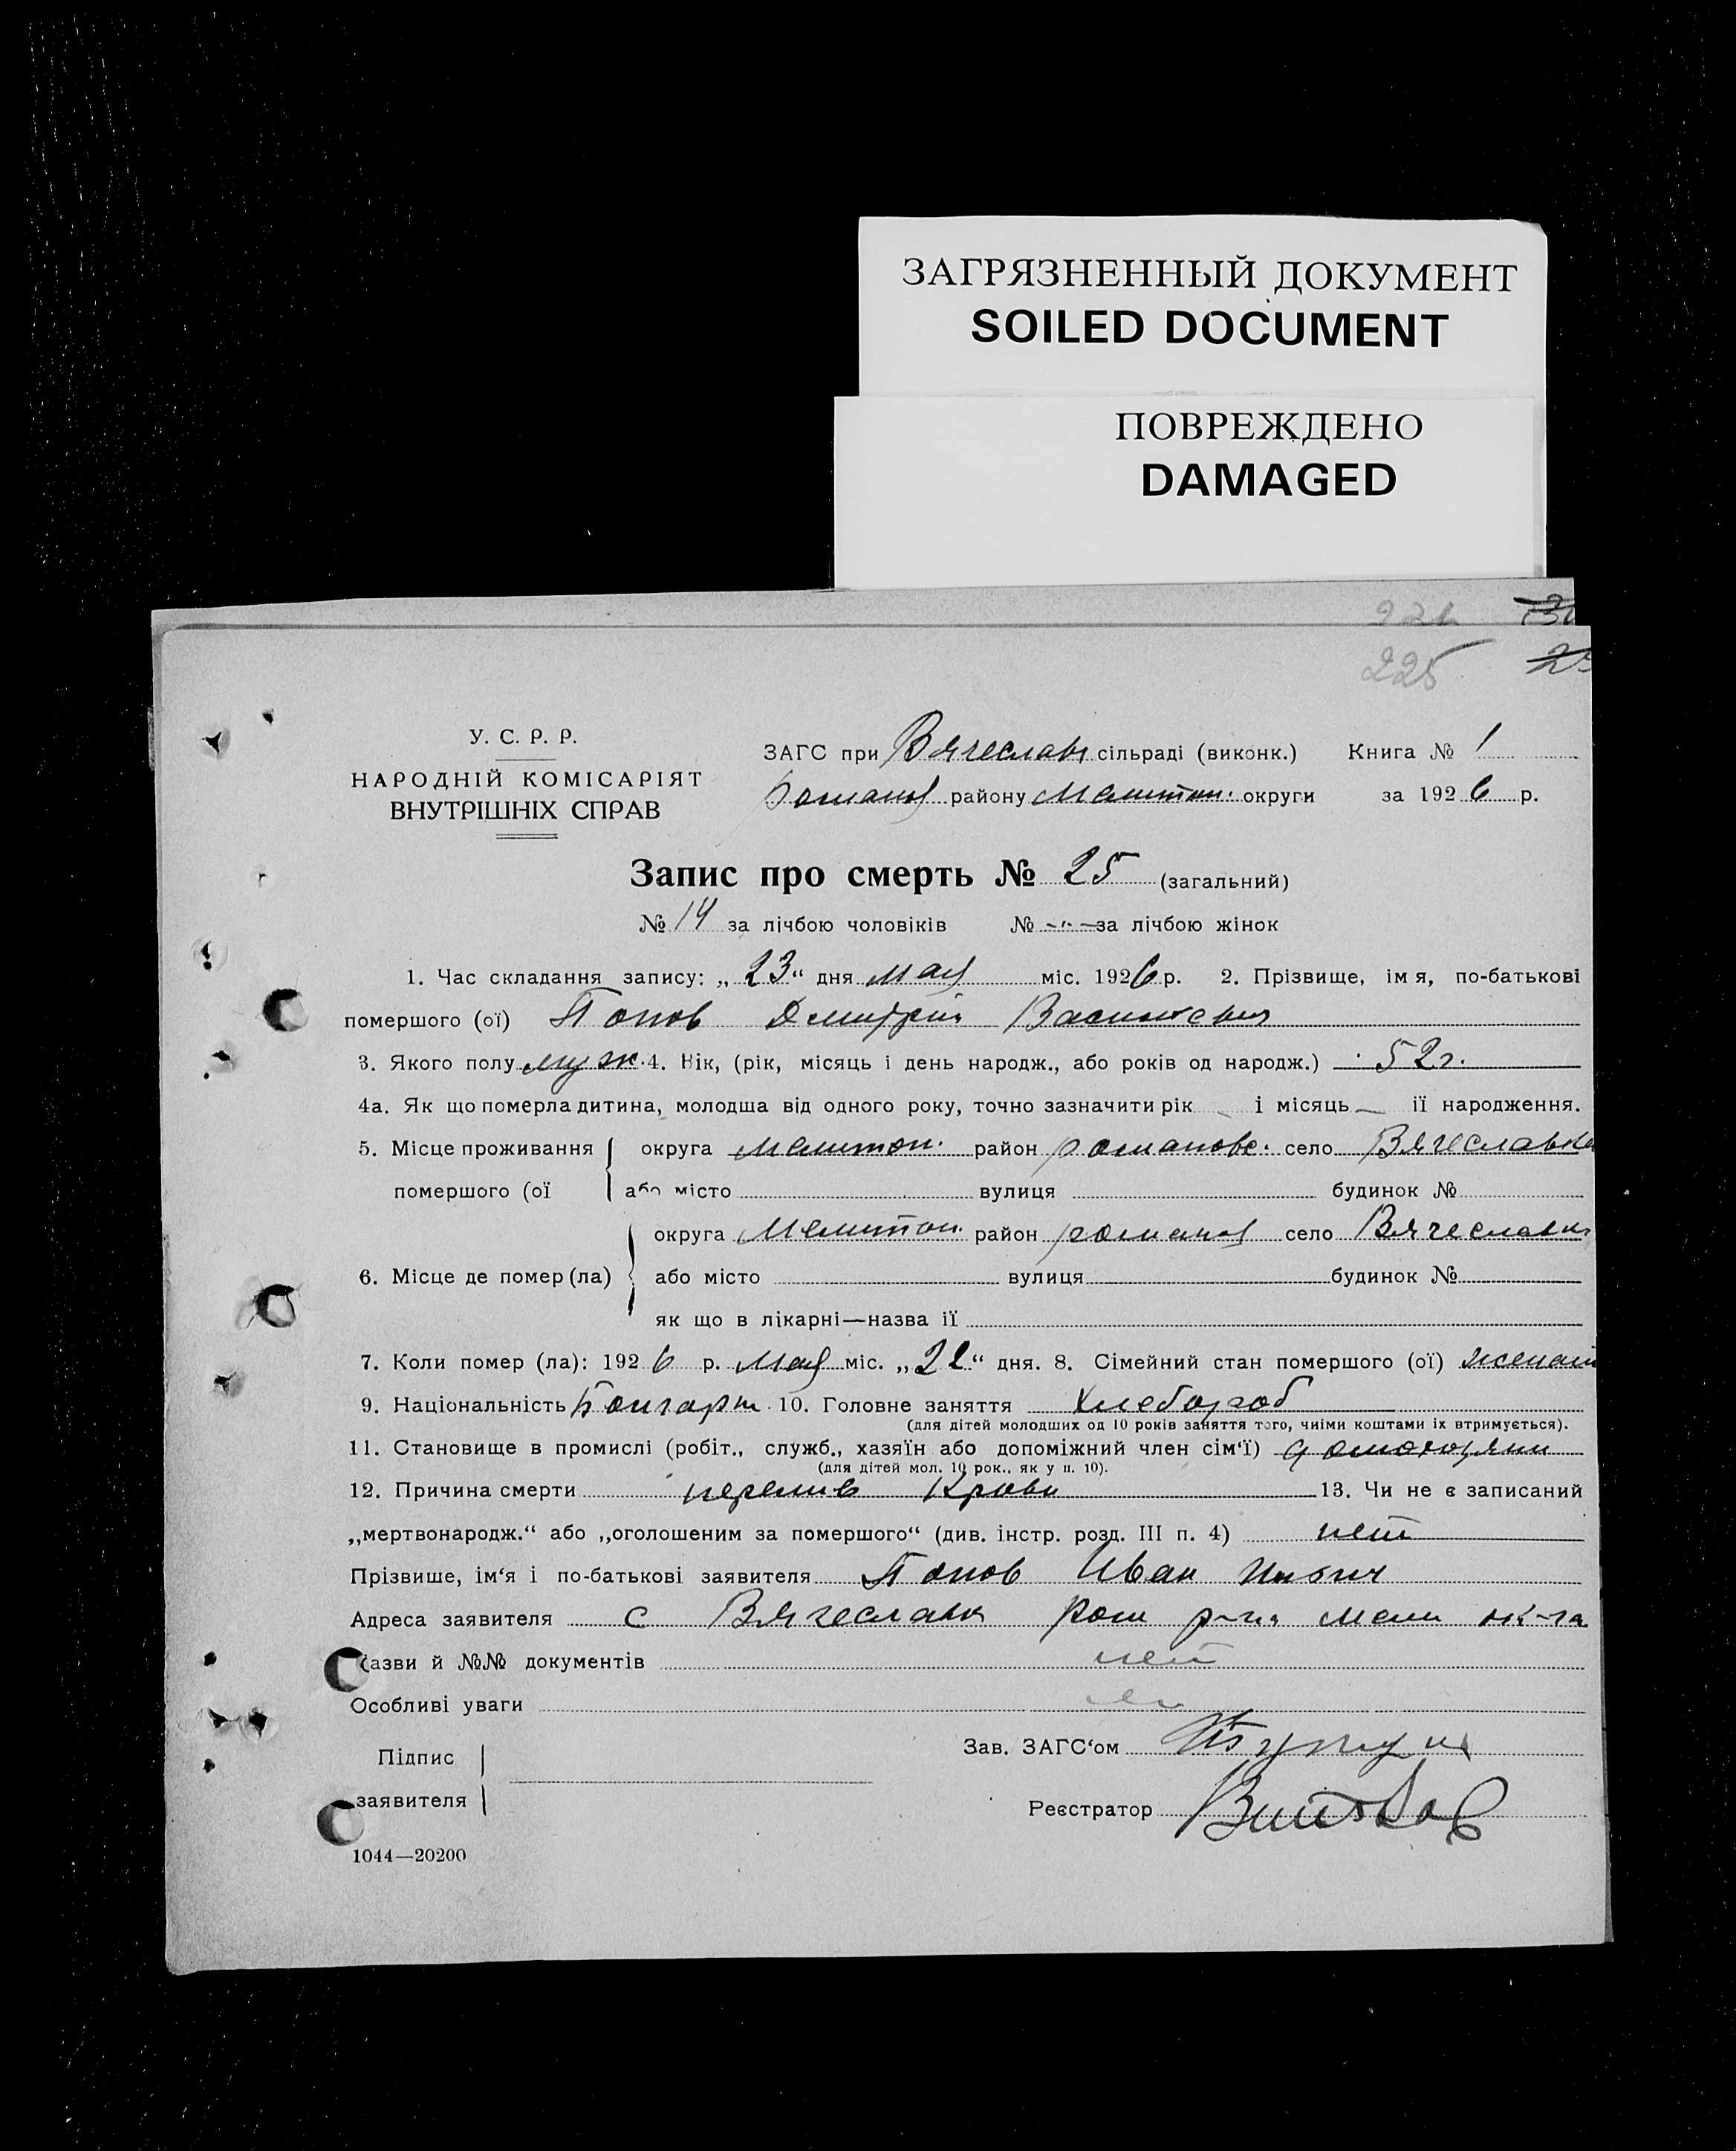 ЗАГРЯЗНЕННЫЙ ДОКУМЕНТ
SOILED DOCUMENT
ПОВРЕЖДЕНО
DAMAGED
225
У. С. Р. Р.
НАРОДНІЙ КОМІСАРІЯТ
ВНУТРІШНІХ СПРАВ
ЗАГС при Вячеслав сільраді (виконк.) Книга № 1
Романов району Мелитоп. округи за 1926 р.
Запис про смерть № 25 (загальний)
№ 14 за лічбою чоловіків № -"- за лічбою жінок
1. Час складання запису: „23“ дня мая міс. 1926 р. 2. Прізвище, ім я, по-батькові
помершого (ої) Попов Дмитрий Васильевич
3. Якого полу муж. 4. Вік, (рік, місяць і день народж., або років од народж.) 52 г.
4а. Як що померла дитина, молодша від одного року, точно зазначити рік — і місяць — її народження.
5. Місце проживання округа Мелитоп. район романовс. село Вячеславка
помершого (ої або місто вулиця будинок №
округа Мелитоп. район романов село Вячеславка
6. Місце де помер (ла) або місто вулиця будинок №
як що в лікарні—назва її
7. Коли помер (ла): 1926 р. мая міс. „22“ дня. 8. Сімейний стан помершого (ої) женат
9. Національність Болгарин 10. Головне заняття хлебороб
(для дітей молодших од 10 років заняття того, чиїми коштами їх втримується).
11. Становище в промислі (робіт., служб., хазяїн або допоміжний член сім'ї) домохозяин
(для дітей мол. 10 рок., як у п. 10).
12. Причина смерти перелив Крови 13. Чи не є записаний
„мертвонародж.“ або „оголошеним за помершого“ (див. інстр. розд. III п. 4) нет
Прізвише, ім'я і по-батькові заявителя Попов Иван Ильич
Адреса заявителя с Вячеславка Ром р-на Мели ок-га
азви й №№ документів нет
Особливі уваги
Підпис
заявителя
Зав. ЗАГС'ом
Реєстратор
1044—20200